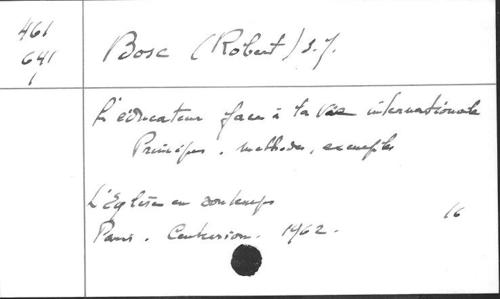 461
641
1
Bosc (Robert) s.j.
L'éducateur face à la vie internationale
Principes, methodes, exemples
L'Eglise en son temps
16
Paris. Centurion. 1962.